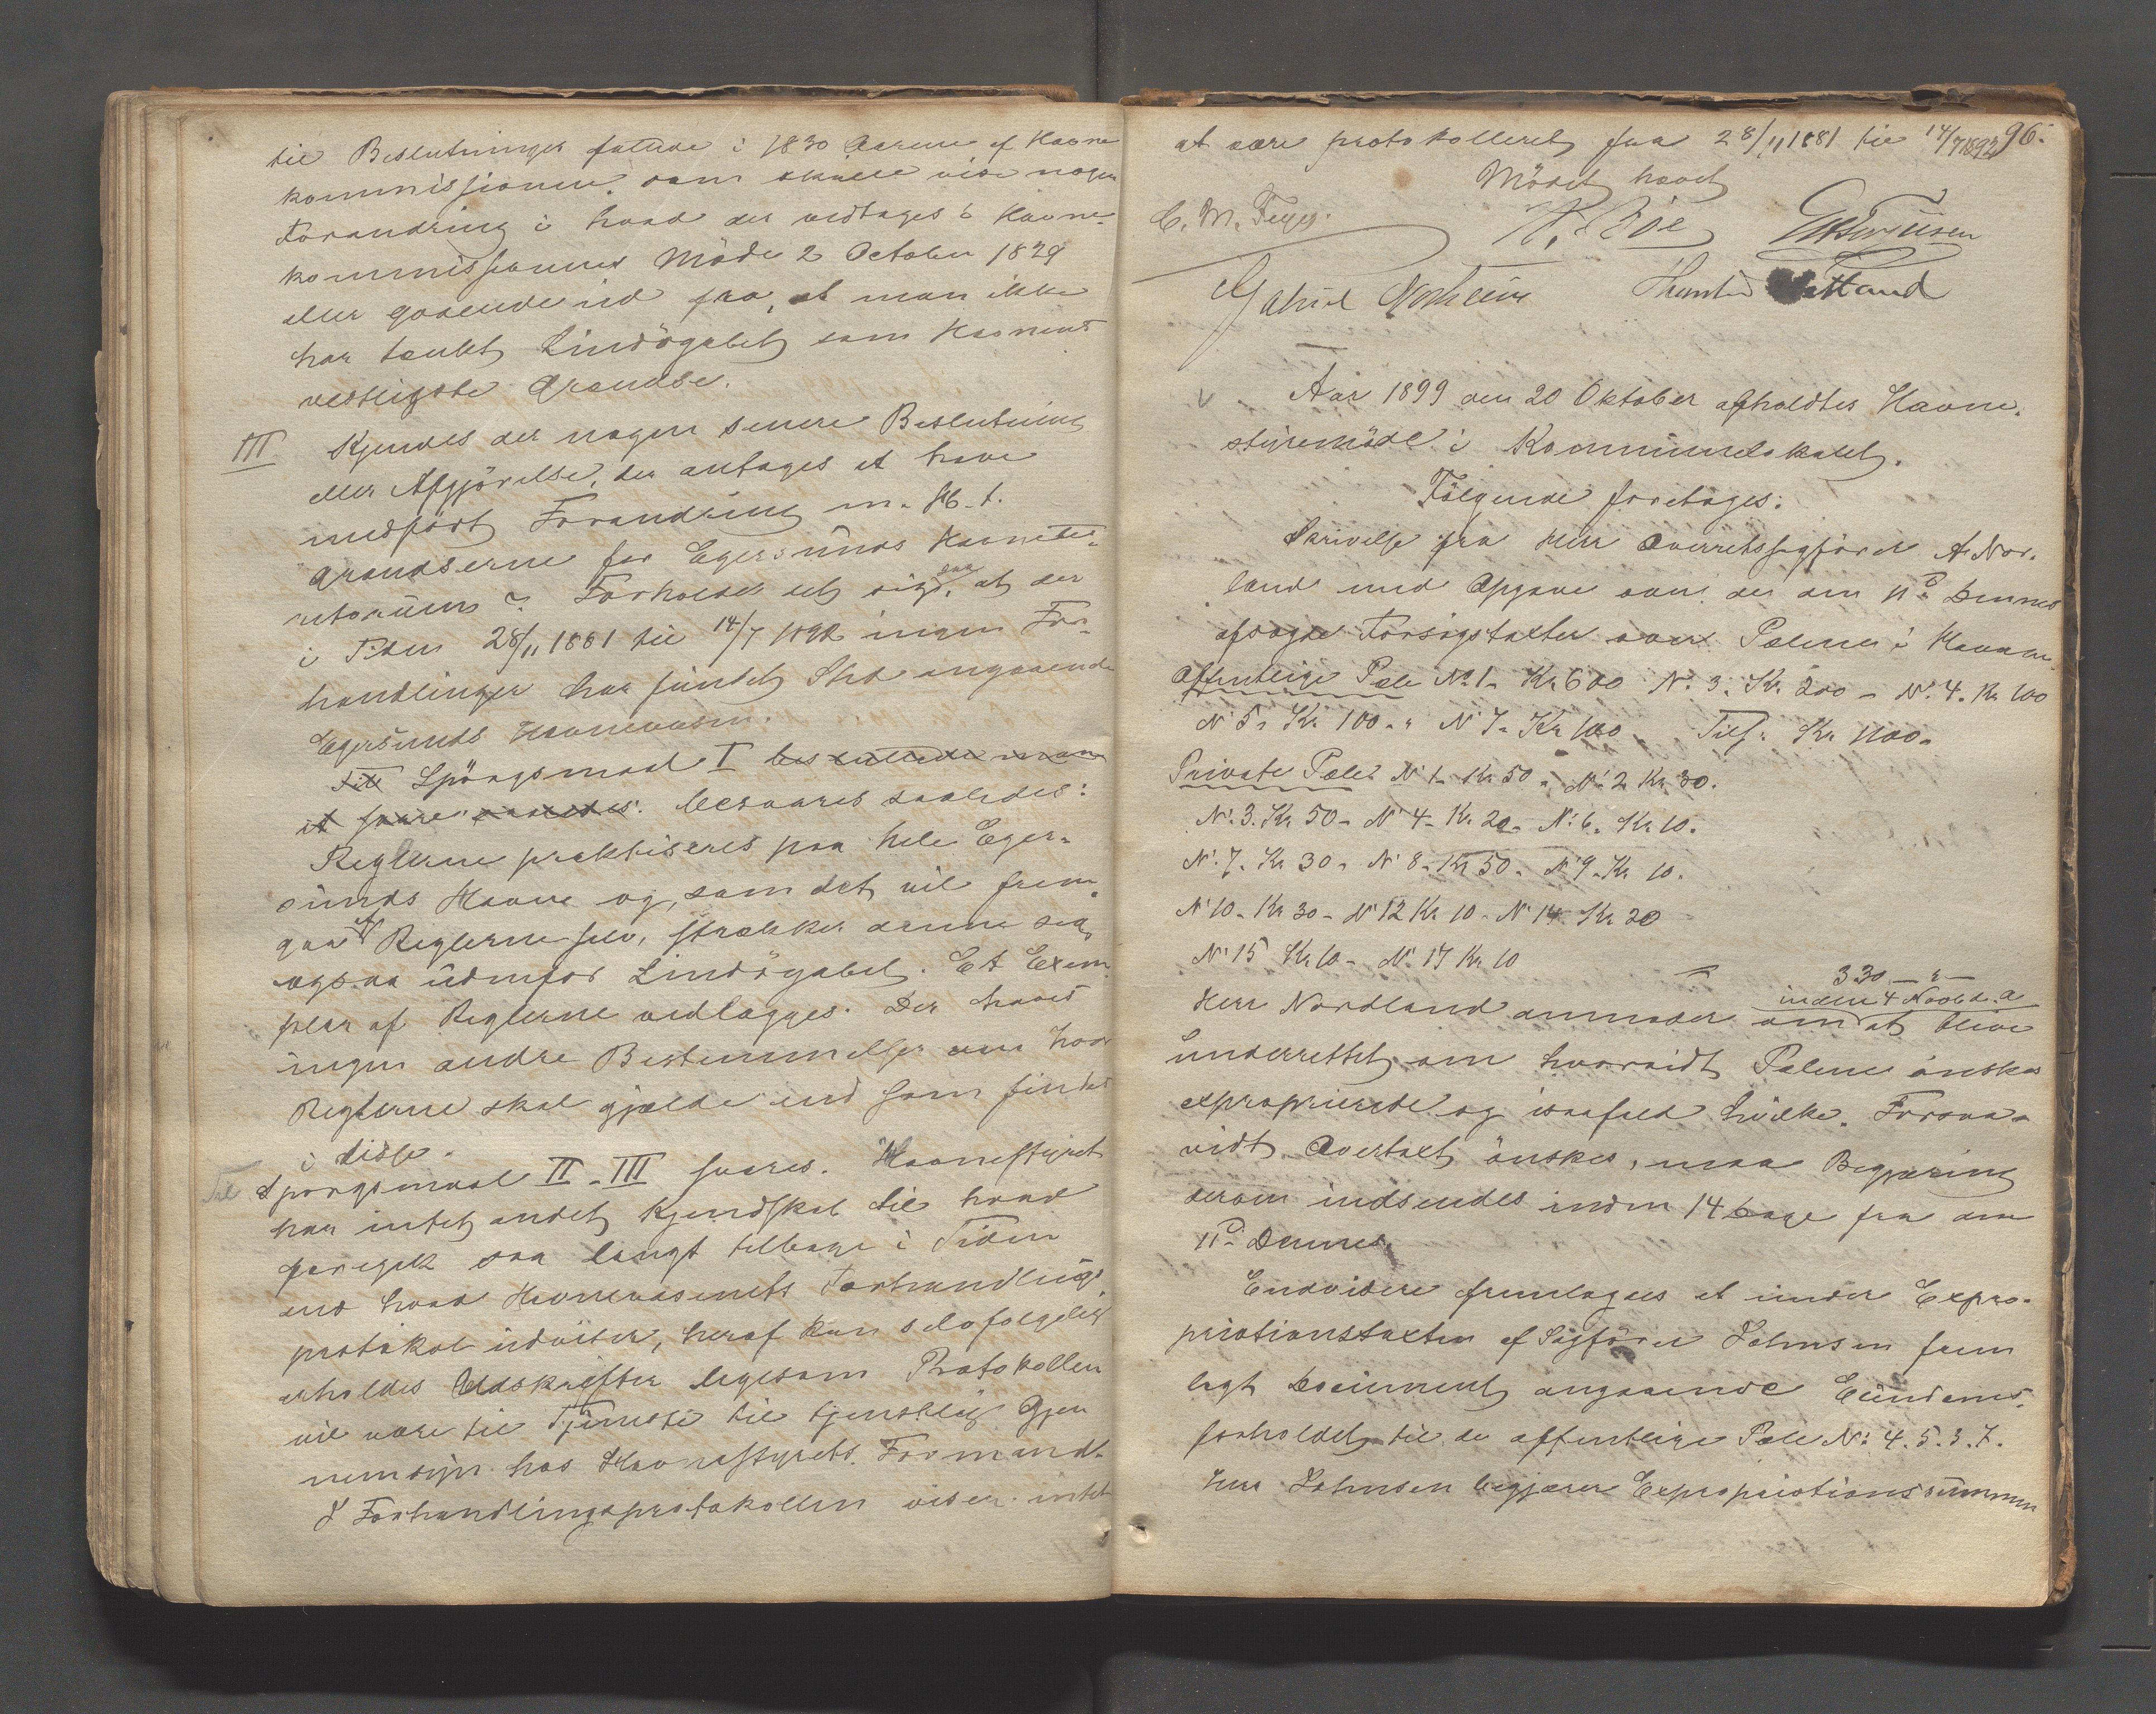 til Beslutninger fattede i 1830 Aarene af Havne
kommissionen, som skulle vise nogen
Forandring i hvad der vedtages i Havne-
kommissionens Möde 2 October 1829
eller gaaende ud fra, at man ikke
har tænkt Lindögabet som Havnens
vestligste Grændse.
III Kjendes der nogen senere Beslutning
eller Afgjörelse, der antages at have
medfört Forandring m. H. t.
Grændserne for Egersunds Havneter-
ritorium? Forholder det sig saa, at der
i Tiden 28/11 1881 til 14/7 1892 ingen For-
handlinger har fundet Sted angaaende
Egersunds Havnevæsen.
Til Spörgsmaal I besluttede man
at svare saaledes: besvares saaledes:
Reglerne praktiseres paa hele Eger-
sunds Havne og, som det vil frem-
gaa af Reglerne selv, strækker denne sig
ogsaa udenfor Lindögabet. Et Exem
plar af Reglerne vedlægges. Der haves
ingen andre Bestemmelser om hvor
Reglerne skal gjælde end som findes
i disse.
Til Spörgsmaal II - III svares. Havnestyret
har intet andet Kjendskab til hvad
foregik saa langt tilbage i Tiden
end hvad Havnevæsenets Forhandlings
protokol udviser, heraf kan selvfölgelig
erholdes Udskrifter ligesom Protokollen
vil være til Tjeneste til tjenstlig Gjen
nemsyn hos Havnestyrets Formand.
I Forhandlingsprotokollen viser intet
at være protokolleret fra 28/11 1881 til 14/7 1892 96.
Mödet hævet
C. M. Feyer.
Gabriel
Aar 1899 den 20 Oktober afholdtes Havne-
styremöde i Kommunelokalet.
Fölgende foretoges:
Skrivelse fra Herr Overretssagförer A. Nor-
land med Opgave over de den 11te Dennes
afsagte Forsigtakster over Pælene i Havnen
Offentlige Pæle No 1- Kr 600 No 3. Kr. 200 - No 4. Kr 100
No 5. Kr 100. - No 7. Kr 100 Tils. Kr 1100.
Private Pæle: No 1. Kr 50. No 2 Kr 30.
No 3. Kr 50 - No 4 - Kr. 20. No 6. Kr 10.
No 7. Kr 30. No 8. Kr 50. No 9. Kr 10.
No 10. Kr 30 - No 12 Kr 10 - No 14 Kr 20
No 15 Kr 10 - No 17 Kr 10
330
Herr Nordland anmoder om inden 4 Novb. d. a at blive
underrettet om hvorvidt Pælene önskes
exproprierede og isaafald hvilke. Forsaa-
vidt Overtakst önskes, maa Begjæring
derom indsendes inden 14 Dage fra den
11te Dennes.
Endvidere fremlagdes et under Expro-
priationstaxten af Sagförer Johnsen frem
lagt Document angaaende Eiendoms-
forholdet til de offentlige Pæle No 4. 5. 3. 7.
Herr Johnsen begjærer Expropriationssummen